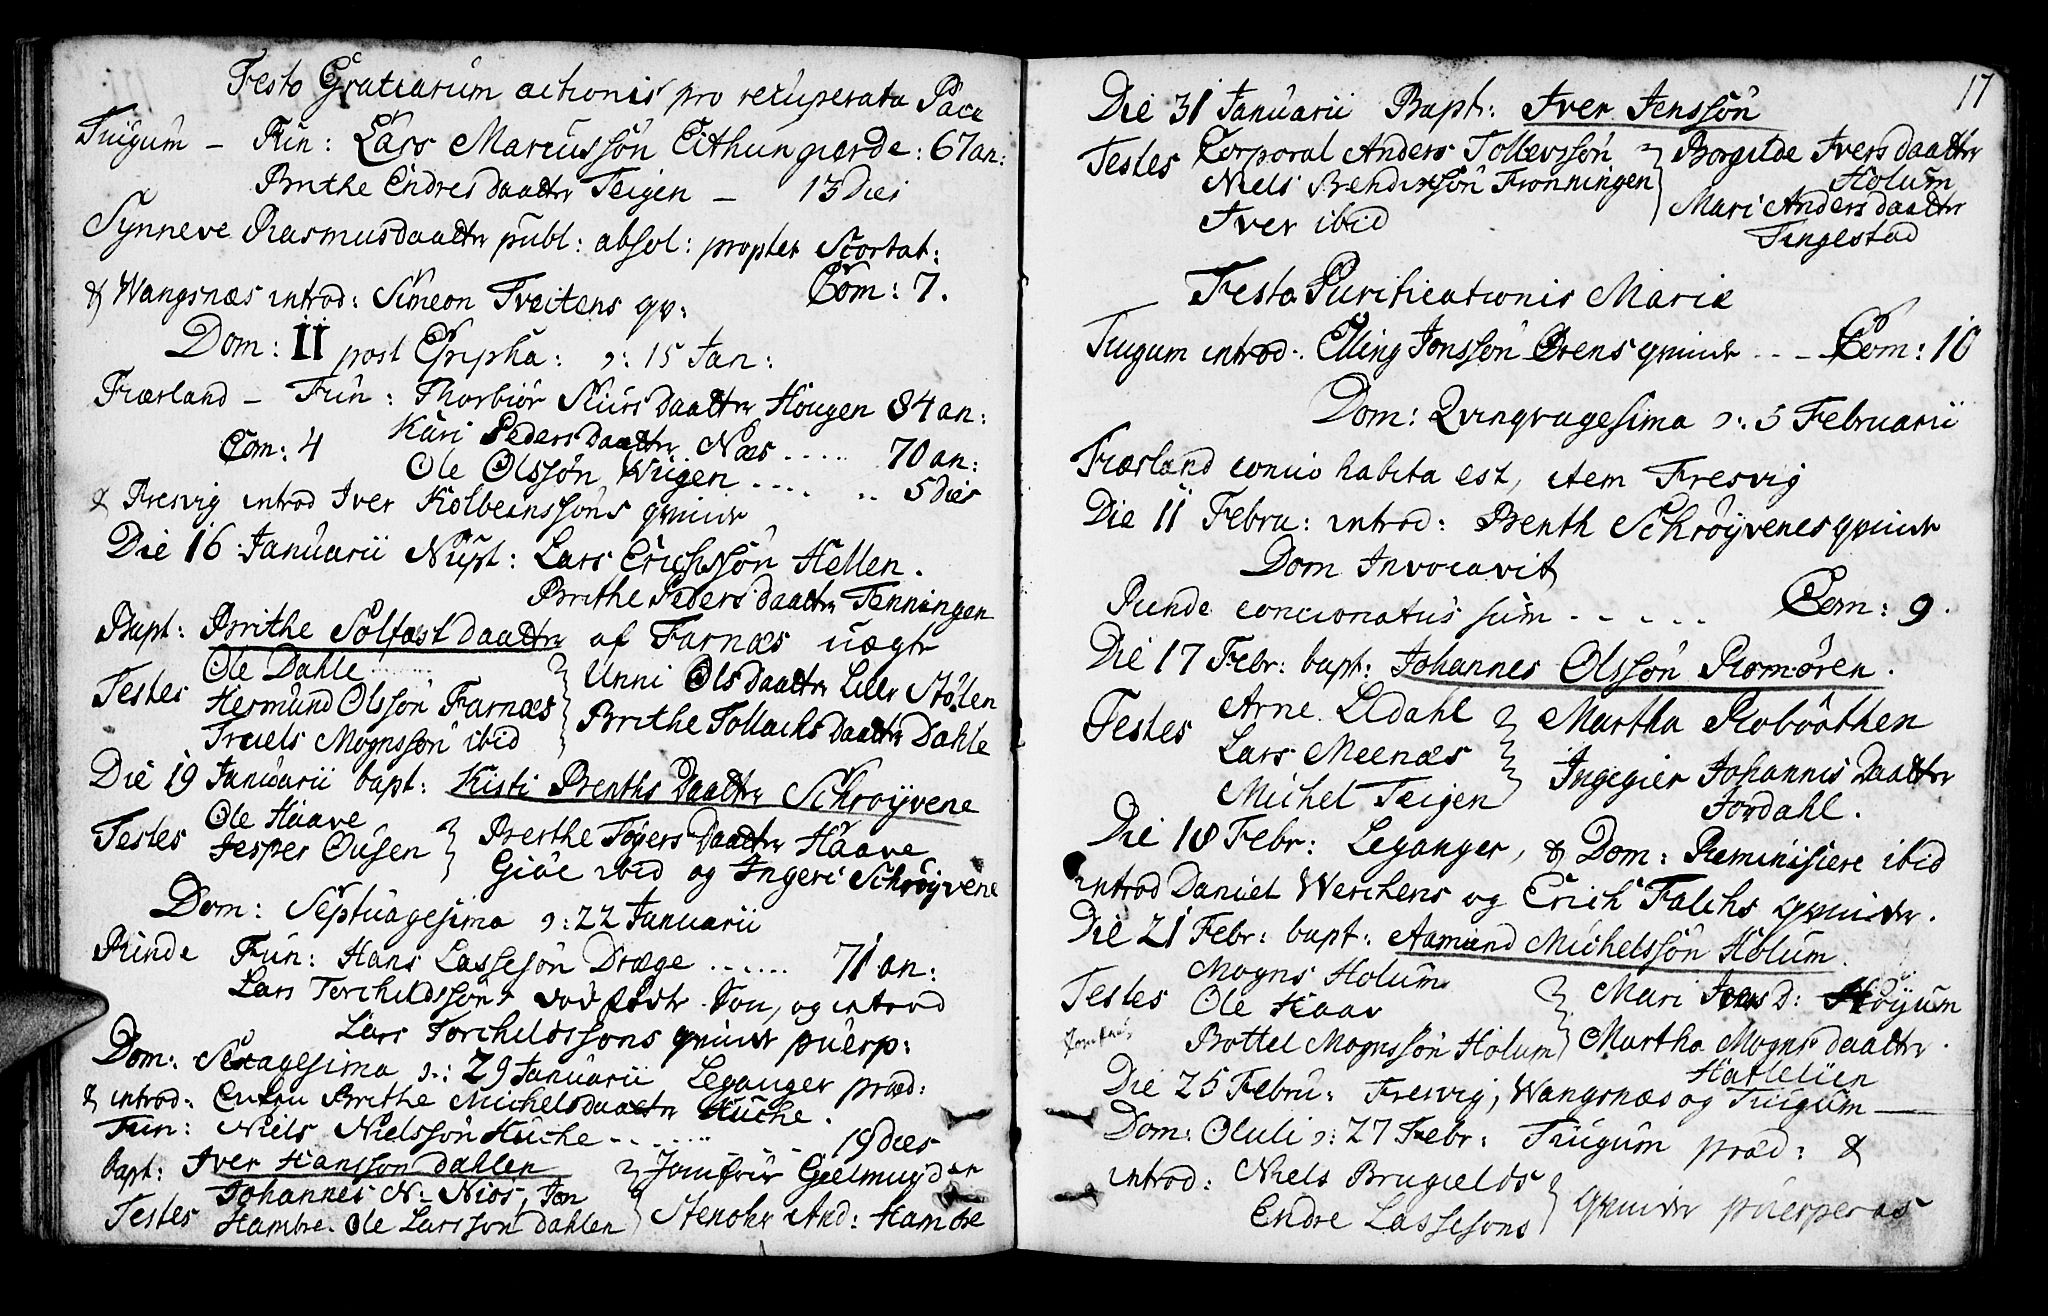 Festo Gratiarum actionis pro recuperata Pace
Tiugum - Fun: Lars Marcussøn Eithungierde: 67 an:
Brithe Endresdaatter Teigen - 13 Dies
Synneve Rasmusdaatter publ: absol: propter Scortat:
& Wangsnæs introd: Simeon Tveitens qv: Com: 7.
Dom: II post Epipha: ɔ: 15 Jan:
Fiærland - Fun: Thorbiør Siursdaatter Hougen 84 an:
Com: 4 Kari Pedersdaatter Næs ..... 70 an:
Ole Olssøn Wiigen .... .. 5 dies
& Fresvig introd Iver Kolbeinssøns qvinde
Die 16 Januarii Nupt: Lars Erichssøn Hellen.
Brithe Pedersdaatter Tenningen
Bapt: Brithe Solfæstdaatter af Farnæs uægte
Ole Dahle
Testes Hermund Olssøn Farnæs
Truels Mognssøn ibid
Unni Olsdaatter Lille Stølen
Brithe Tollachsdaatter Dahle
Die 19 Januarii bapt: Kisti Benthsdaatter Schrøyvene
Ole Haave
Testes Jesper Ousen
Berthe Togersdaatter Haave
Giøe ibid og Ingeri Schrøyvene
Dom: Septuagesima ɔ: 22 Januarii
Rinde Fun: Hans Lassesøn Dræge ...... 71 an:
Lars Torchildssøns dødfødte Søn, og introd
Lars Torchildssons qvinde puerp:
Dom: Sexagesima ɔ: 29 Januarii Leganger præd:
& introd: Enken Brithe Michelsdaatter Huche.
Fun: Niels Nielssøn Huche - - - - 19 dies
bapt: Iver Hanssøn Dahlen
Testes Johannes N: Nios, Jon
Hambre. Ole Larssøn Dahlen
Jomfrue Geelmuyden
Stenohr And: Hambre
17
Die 31 Januarii Bapt: Iver Jenssøn
Testes Corporal Anders Tollevssøn
Niels Bendixsøn Frønningen
Iver ibid
Borgilde Iversdaatter
Holum
Mari Andersdaatter
Tingestad
Festo Purificationis Mariæ
Tiugum introd: Elling Jonssøn Ørens qvinde - - - Com: 10
Dom: Qvinqvagesima ɔ: 5 Februarii
Fiærland concio habita est, item Fresvig
Die 11 Febru: introd: Benth Schrøyvenes qvinde
Dom Invocavit
Rinde concionatus sum - - - - - Com: 9.
Die 17 Febr: bapt: Johannes Olssøn Romøren.
Testes Arne Lidahl
Lars Meenæs
Michel Teigen
Martha Robøothen
Ingegier Johannisdaatter
Jordahl.
Die 18 Febr: Leganger, & Dom: Reminiscere ibid
introd Daniel Werchens og Erich Falchs qvinder.
Die 21 Febr: bapt: Aamund Michelssøn Holum.
Mogns Holum
Testes Ole Haav
Bottel Mognssøn Holum
Mari D: Høyum
Martha Mognsdaatter.
Hatleliin
Die 25 Febru: Fresvig, Wangsnæs og Tiugum —
Dom: Oculi ɔ: 27 Febr: Tiugum præd: &
introd: Niels Brugields
Endre Lassesøns
qvinder puerperas